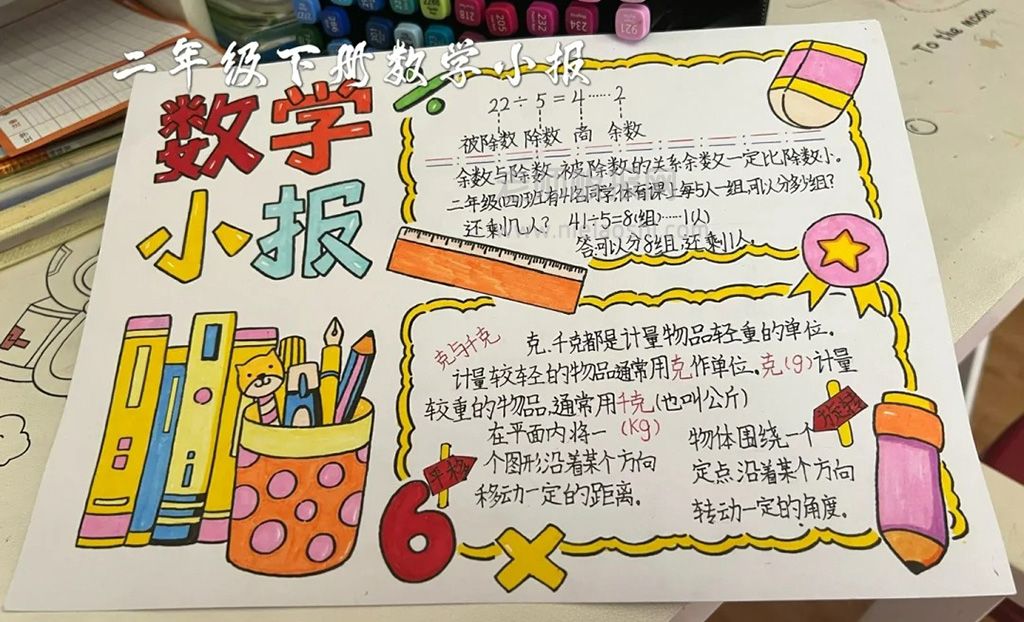 二年级下册数学小报
数学
小报
22÷5=4……2
被除数 除数 商 余数
余数与除数,被除数的关系余数一定比除数小。
二年级(四)班有41名同学,体育课上每5人一组,可以分多少组?
还剩几人? 41÷5=8(组)……1(人)
答:可以分8组,还剩1人.
克与千克
克、千克都是计量物品轻重的单位。
计量较轻的物品通常用克作单位。克(g)计量
较重的物品,通常用千克(也叫公斤)
(kg)
平移
在平面内将一
个图形沿着某个方向
移动一定的距离。
旋转
物体围绕一个
定点沿着某个方向
转动一定的角度。
6
To the moon.
921
234
232
205